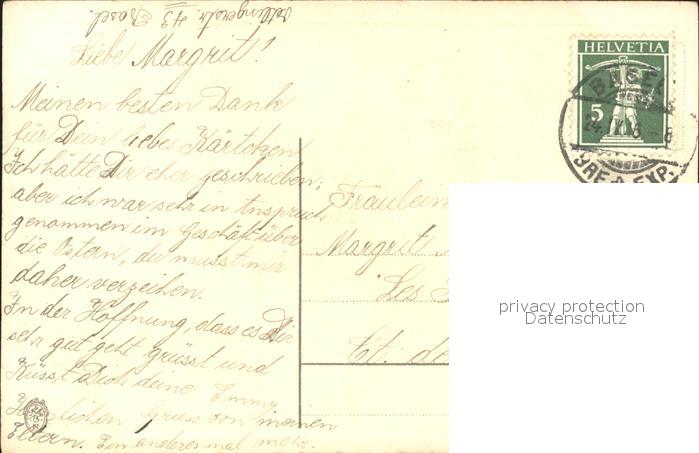 str. 43 Basel.
Liebe Margrit!
Meinen besten Dank
für Dein liebes Kärtchen
Ich hätte Dir eher geschrieben,
aber ich war sehr in Anspruch
genommen im Geschäft über
die Ostern, du musst mir
daher verzeihen.
In der Hoffnung, dass es Dir
sehr gut geht grüsst und
Küsst Dich deine Emmy
Herzlichen Gruss von meinen
Eltern. Ein anderes mal mehr.
HELVETIA
5
BASEL
BRF. EXP.
Fräulein
Margrit
Les
Ct. de
privacy protection
Datenschutz